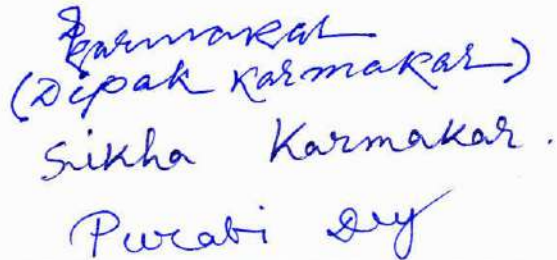 Dkarmakar
(Dipak Karmakar)
Sikha Karmakar.
Purabi Dey